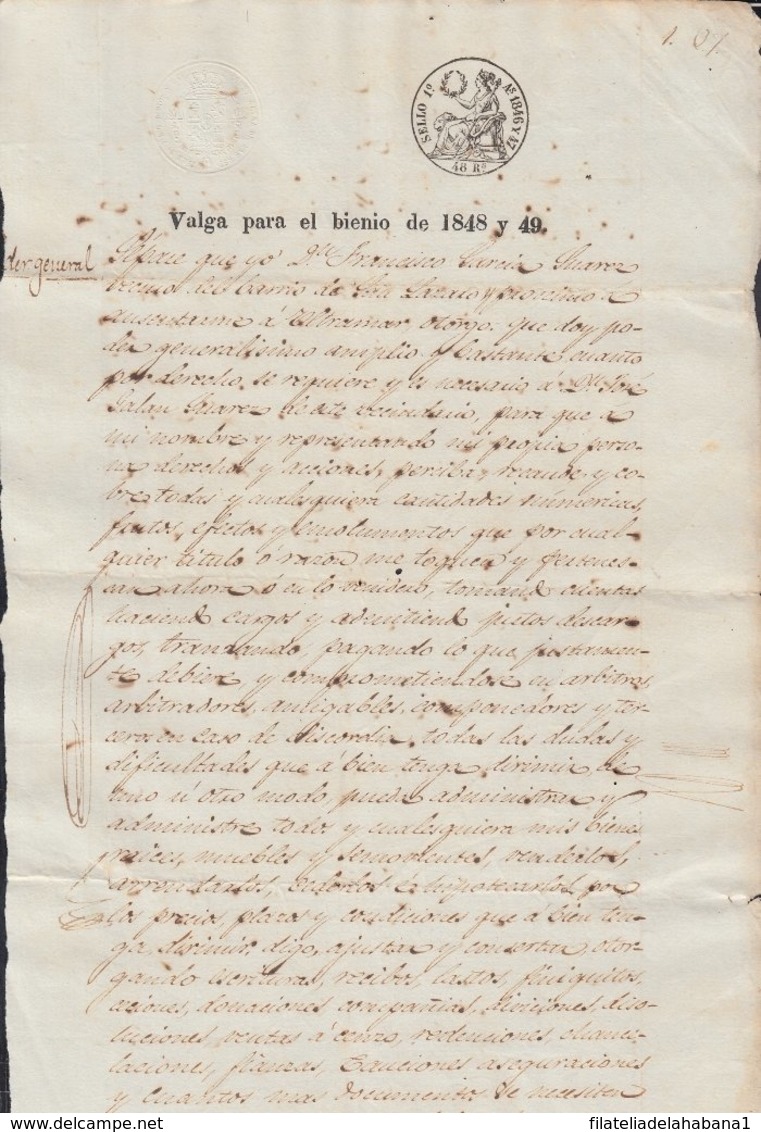 1. 07
SELLO 1º Aˢ 1846 Y 47
48 Rˢ
Valga para el bienio de 1848 y 49.
der general
Sepase que yo Dⁿ Francisco Garcia Suarez
vecino del barrio de San Lazaro y proximo á
ausentarme á Ultramar, otorgo: que doy po-
der generalisimo amplio y bastante cuanto
por derecho se requiere y es necesario á Dⁿ José
Galan Suarez de este vecindario, para que a
mi nombre y representando mi propia perso-
na derechos y acciones, perciba, recaude y co-
bre todas y cualesquiera cantidades númericas,
frutos, efectos y emolumentos que por cual-
quier título ó razon me toquen y pertenes-
can ahora ó en lo venidero, tomando cuentas
haciendo cargos y admitiendo justos descar-
gos, tranzando, pagando lo que justamen-
te debiere y comprometiendose en arbitros,
arbitradores, amigables, componedores y ter-
cero en caso de discordia, todas las dudas y
dificultades que á bien tenga dirimir de
uno ú otro modo, pueda administrar y
administre todos y cualesquiera mis bienes
raices, muebles y semovientes, venderlos,
arrendarlos, cederlos é hipotecarlos, por
los precios, plazos y condiciones que á bien ten-
ga dirimir, digo, ajustar y consertar, otor-
gando escrituras, recibos, lastos, finiquitos,
cesiones, donaciones compañias, diviciones, diso-
luciones, ventas á censo, redenciones, chance-
laciones, fianzas, cauciones aseguraciones
y cuantos mas documentos se necesiten
filateliadelahabana1